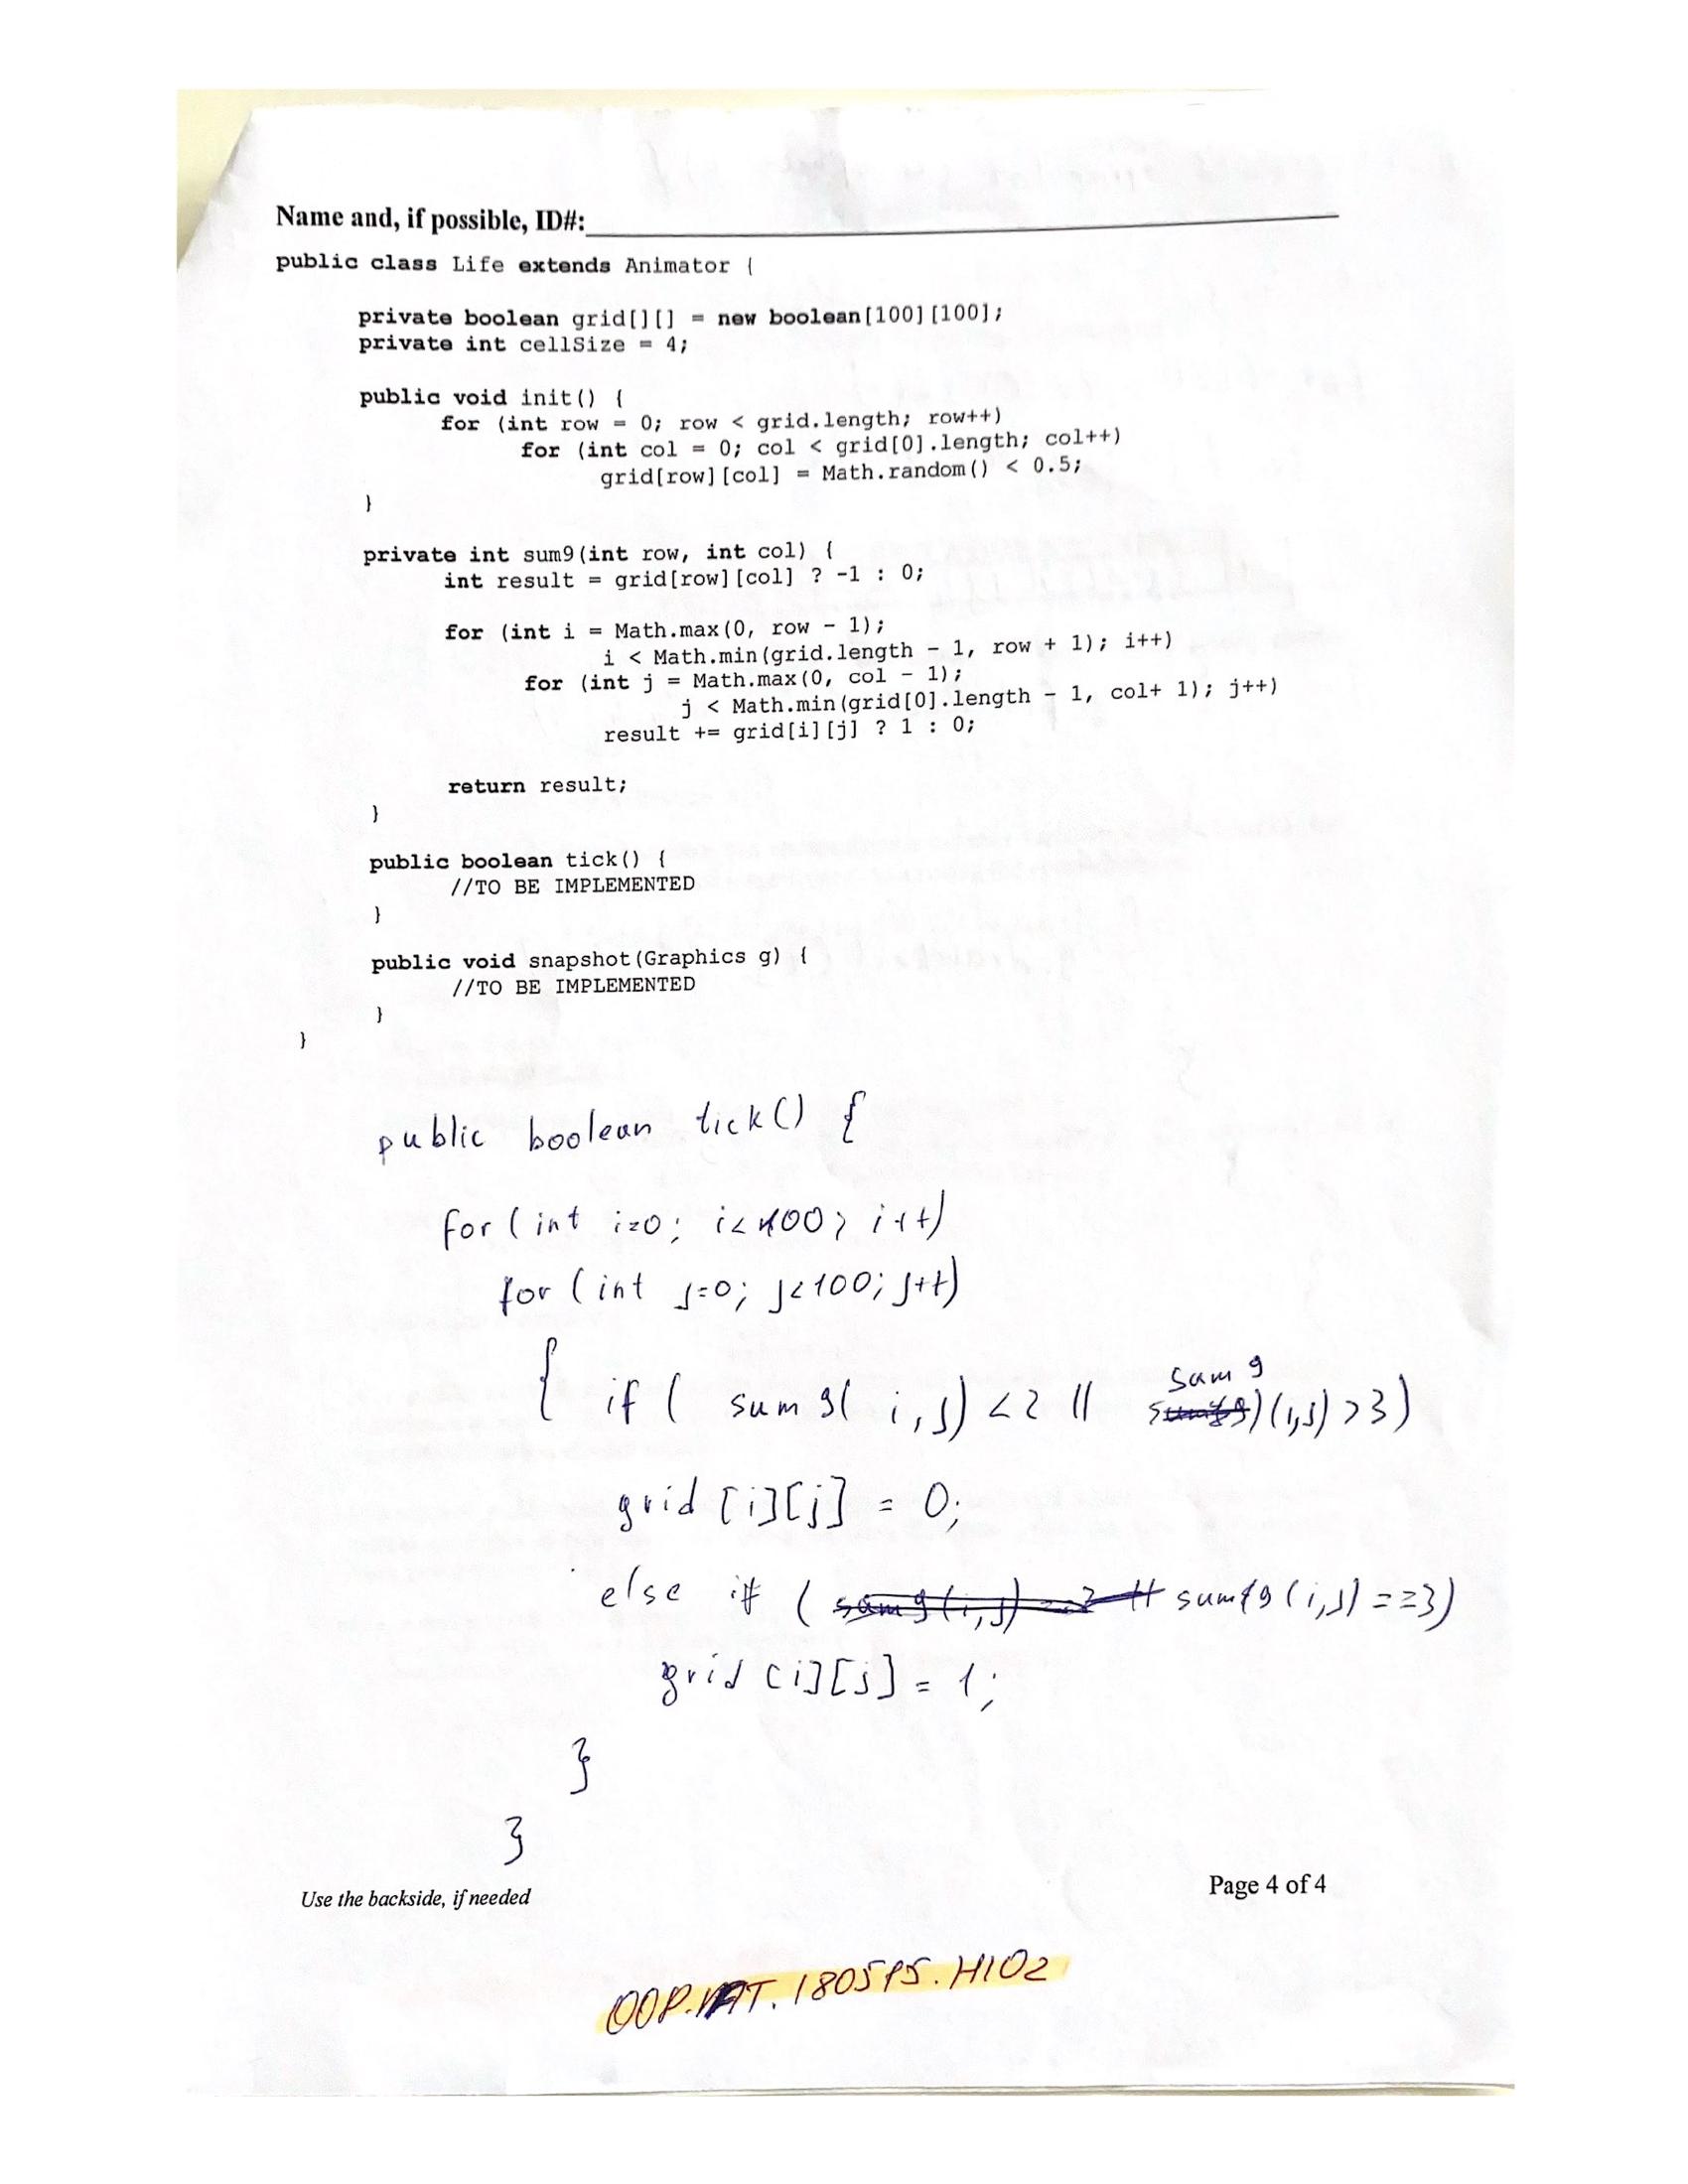 Name and, if possible, ID#:
public class Life extends Animator {
private boolean grid[][] = new boolean[100][100];
private int cellSize = 4;
public void init() {
for (int row = 0; row < grid.length; row++)
for (int col = 0; col < grid[0].length; col++)
grid[row][col] = Math.random() < 0.5;
}
private int sum9(int row, int col) {
int result = grid[row][col] ? -1 : 0;
for (int i = Math.max(0, row - 1);
i < Math.min(grid.length - 1, row + 1); i++)
for (int j = Math.max(0, col - 1);
j < Math.min(grid[0].length - 1, col+ 1); j++)
result += grid[i][j] ? 1 : 0;
return result;
}
public boolean tick() {
//TO BE IMPLEMENTED
}
public void snapshot(Graphics g) {
//TO BE IMPLEMENTED
}
}
public boolean tick() {
for (int i=0; i<100; i++)
for (int j=0; j<100; j++)
{ if ( sum9( i, j) <2 || sum9 (i,j) >3)
grid [i][j] = 0;
else if ( sum9 (i,j) ==3)
grid [i][j] = 1;
}
}
Use the backside, if needed
Page 4 of 4